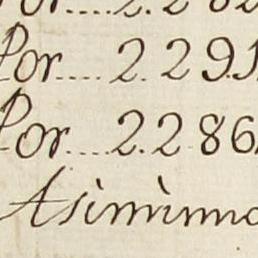 Por.... 2.291
Por.... 2.286
Asimismo